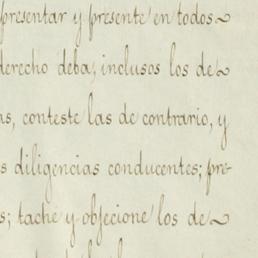 presentar y presente en todos
derecho deba, inclusos los de
as, conteste las de contrario, y
s diligencias conducentes; pre-
s; tache y objecione los de